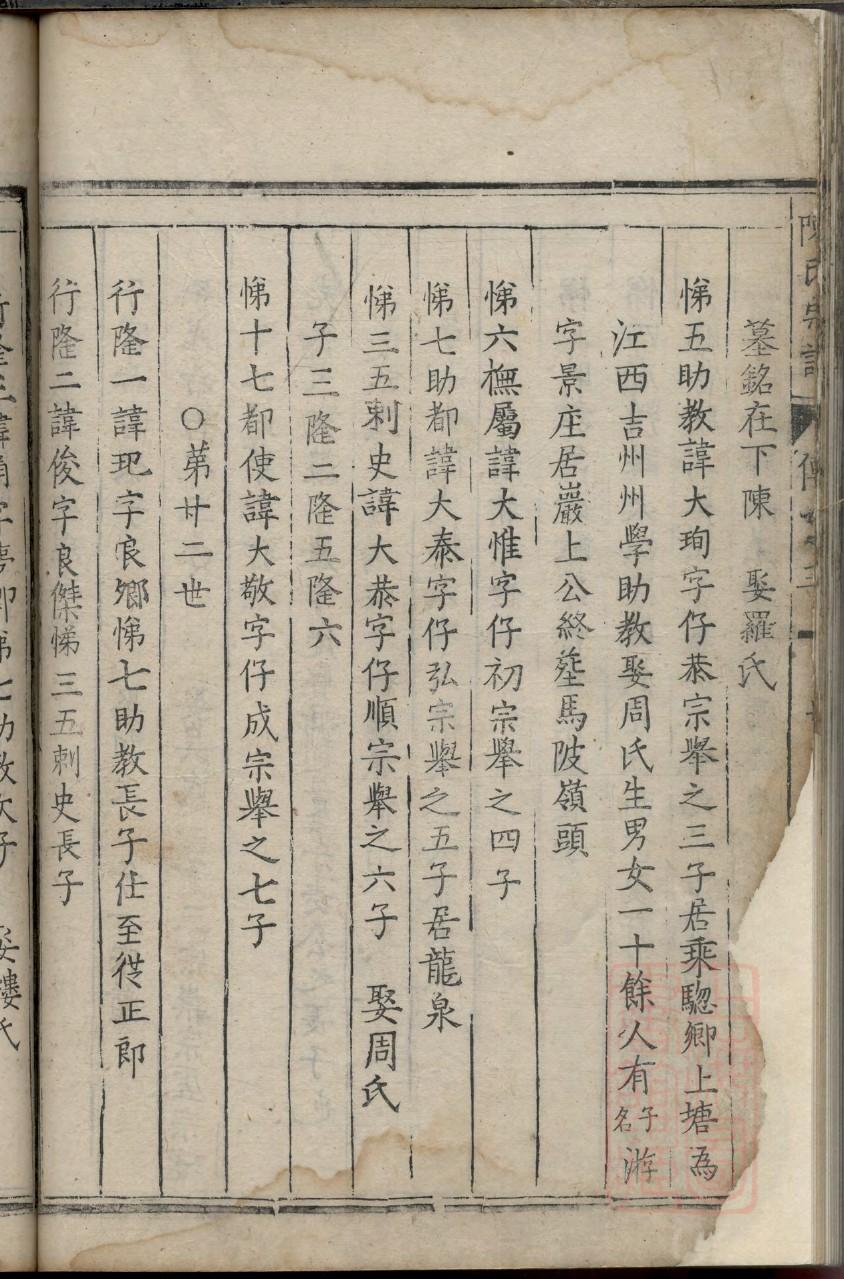 陳氏宗譜
墓銘在下陳 娶羅氏
悌五助教諱大珣字仔恭宗舉之三子居乘驄鄉上塘為
江西吉州州學助教娶周氏生男女一十餘人有子名游
字景庄居巖上公終塟馬陂嶺頭
悌六橅屬諱大惟字仔初宗舉之四子
悌七助都諱大泰字仔弘宗舉之五子居龍泉
悌三五剌史諱大恭字仔順宗舉之六子 娶周氏
子三隆二隆五隆六
悌十七都使諱大敬字仔成宗舉之七子
○苐廿二世
行隆一諱玘字良鄉悌七助教長子仕至從正郎
行隆二諱俊字良傑悌三五剌史長子